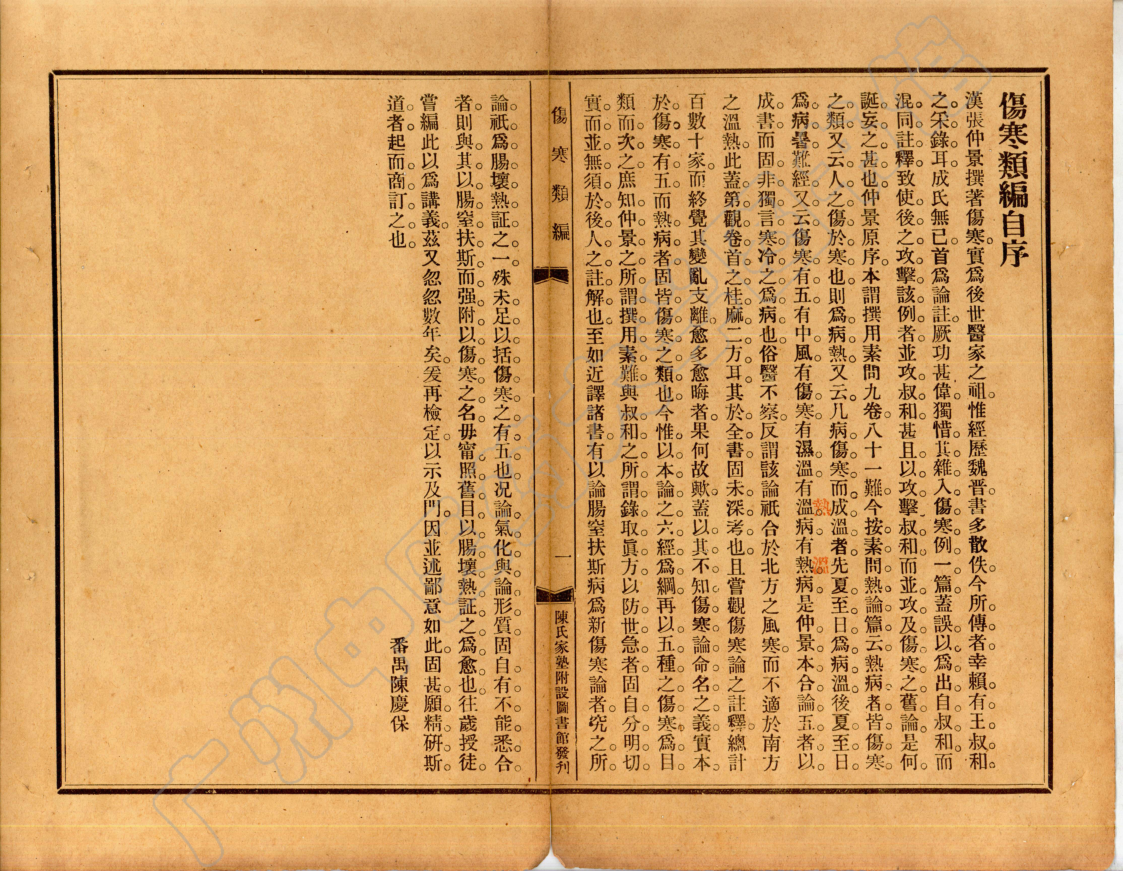 傷寒類編自序
漢張仲景撰著傷寒實爲後世醫家之祖惟經歷魏晋書多散佚今所傳者幸賴有王叔和。
之采錄耳成氏無已首爲論註厥功甚偉獨惜其雜入傷寒例一篇蓋誤以爲出自叔和而
混同註釋致使後之攻擊該例者並攻叔和甚且以攻擊叔和而並攻及傷寒之舊論是何
誕妄之甚也仲景原序本謂撰用素問九卷八十一難今按素問熱論篇云熱病者皆傷寒
之類又云人之傷於寒也則爲病熱又云凡病傷寒而成溫者先夏至日爲病溫後夏至日
爲病暑難經又云傷寒有五有中風有傷寒有濕溫有溫病有熱病是仲景本合論五者以
熱 濕
成書而固非獨言寒冷之爲病也俗醫不察反謂該論祇合於北方之風寒而不適於南方
之溫熱此蓋第觀卷首之桂麻二方耳其於全書固未深考也且嘗觀傷寒論之註釋總計
百數十家而終覺其變亂支離愈多愈晦者果何故歟蓋以其不知傷寒論命名之義實本
於傷寒有五而熱病者固皆傷寒之類也今惟以本論之六經爲綱再以五種之傷寒爲目
類而次之庶知仲景之所謂撰用素難與叔和之所謂錄取眞方以防世急者固自分明切
實而並無須於後人之註解也至如近譯諸書有以論腸窒扶斯病爲新傷寒論者究之所
傷寒類編
一
陳氏家塾附設圖書館發刋
論祇爲腸壞熱証之一殊未足以括傷寒之有五也况論氣化與論形質固自有不能悉合
者則與其以腸窒扶斯而强附以傷寒之名毋甯照舊目以腸壞熱証之爲愈也往歲授徒
嘗編此以爲講義茲又忽忽數年矣爰再檢定以示及門因並述鄙意如此固甚願精硏斯
道者起而商訂之也
番禺陳慶保
广州中医药大学图书馆